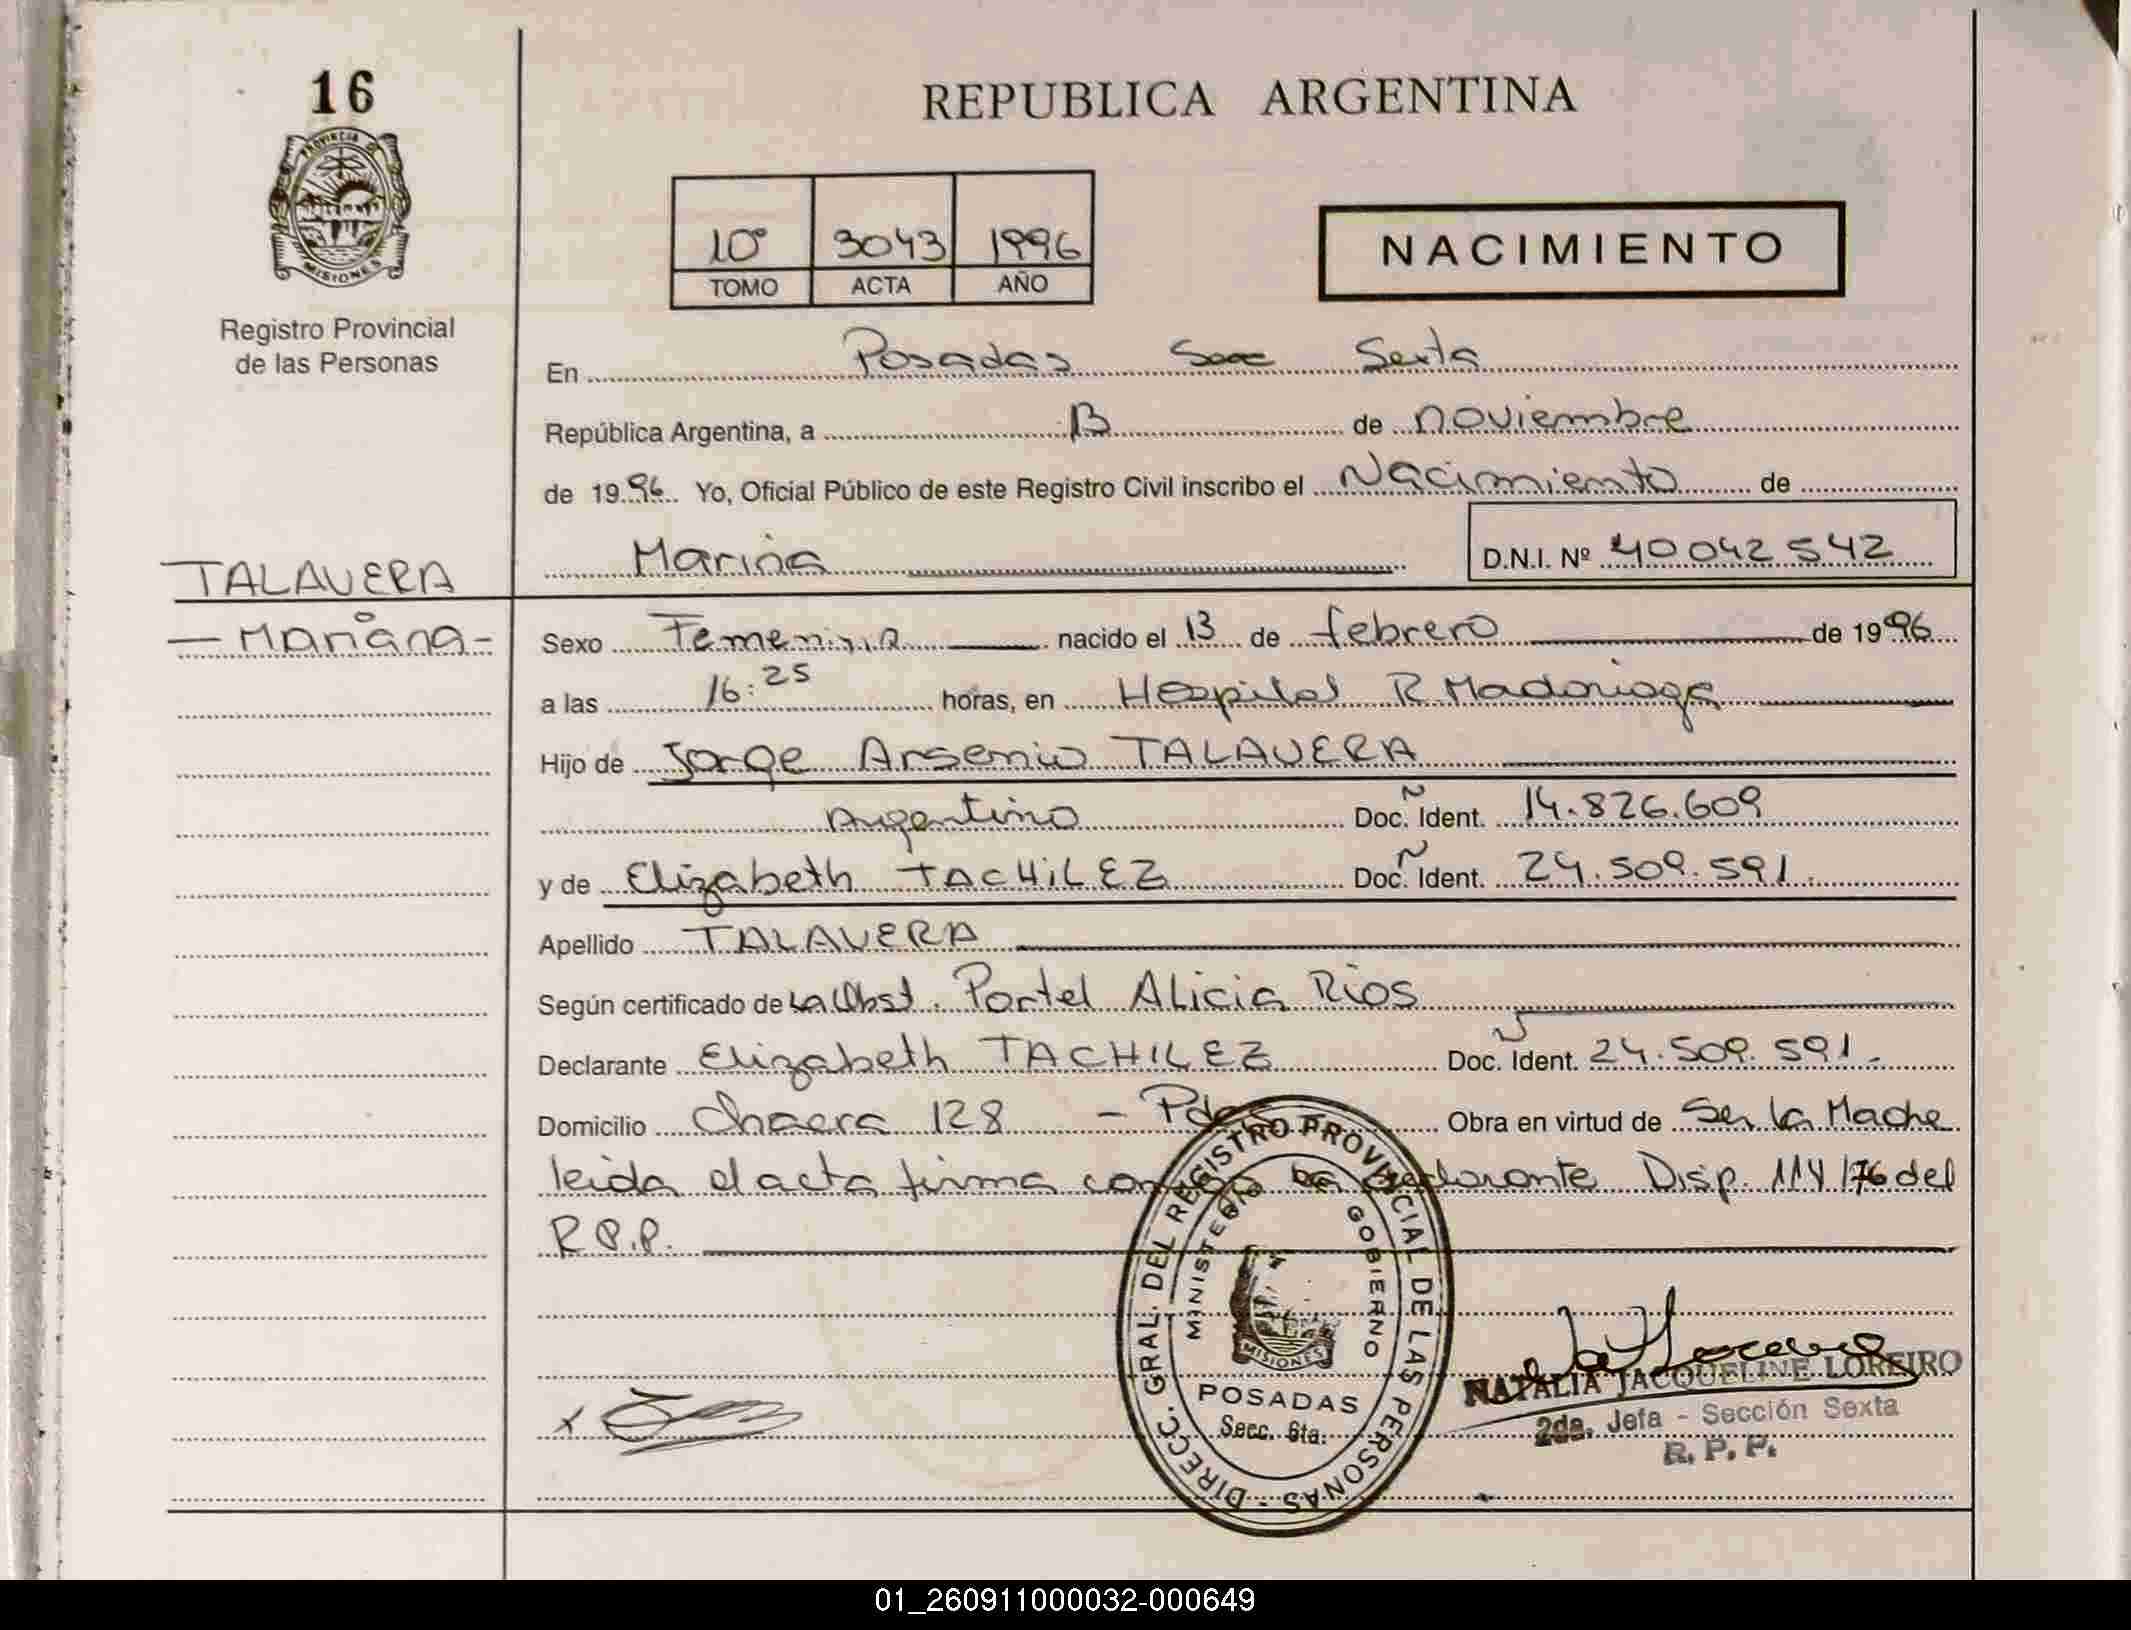 16
REPUBLICA ARGENTINA
PROVINCIA DE
MISIONES
Registro Provincial
de las Personas
10° 3043 1996
TOMO ACTA AÑO
NACIMIENTO
En Posadas Secc Sexta
República Argentina, a 13 de noviembre
de 1996 Yo, Oficial Público de este Registro Civil inscribo el Nacimiento de
D.N.I. Nº 40042542
TALAVERA
Sexo Femenina nacido el 13 de febrero de 1996
a las 16:25 horas, en Hospital R Madariaga
Hijo de Jorge Arsenio TALAVERA
Argentino Doc. Ident. 14.826.609
y de Elizabeth TACHILEZ Doc. Ident. 24.509.591.
Apellido TALAVERA
Según certificado de La Obst. Portel Alicia Rios
Declarante Elizabeth TACHILEZ Doc. Ident. 24.509.591.-
Domicilio Chacra 128 - Pdas Obra en virtud de Ser la Madre
leida el acta firma conmigo la declarante Disp. 114/76 del
R.P.P.
DIRECC. GRAL. DEL REGISTRO PROVINCIAL DE LAS PERSONAS -
MINISTERIO DE GOBIERNO
MISIONES
POSADAS
Secc. 6ta.
NATALIA JACQUELINE LOREIRO
2da. Jefa - Sección Sexta
R. P. P.
01_260911000032-000649